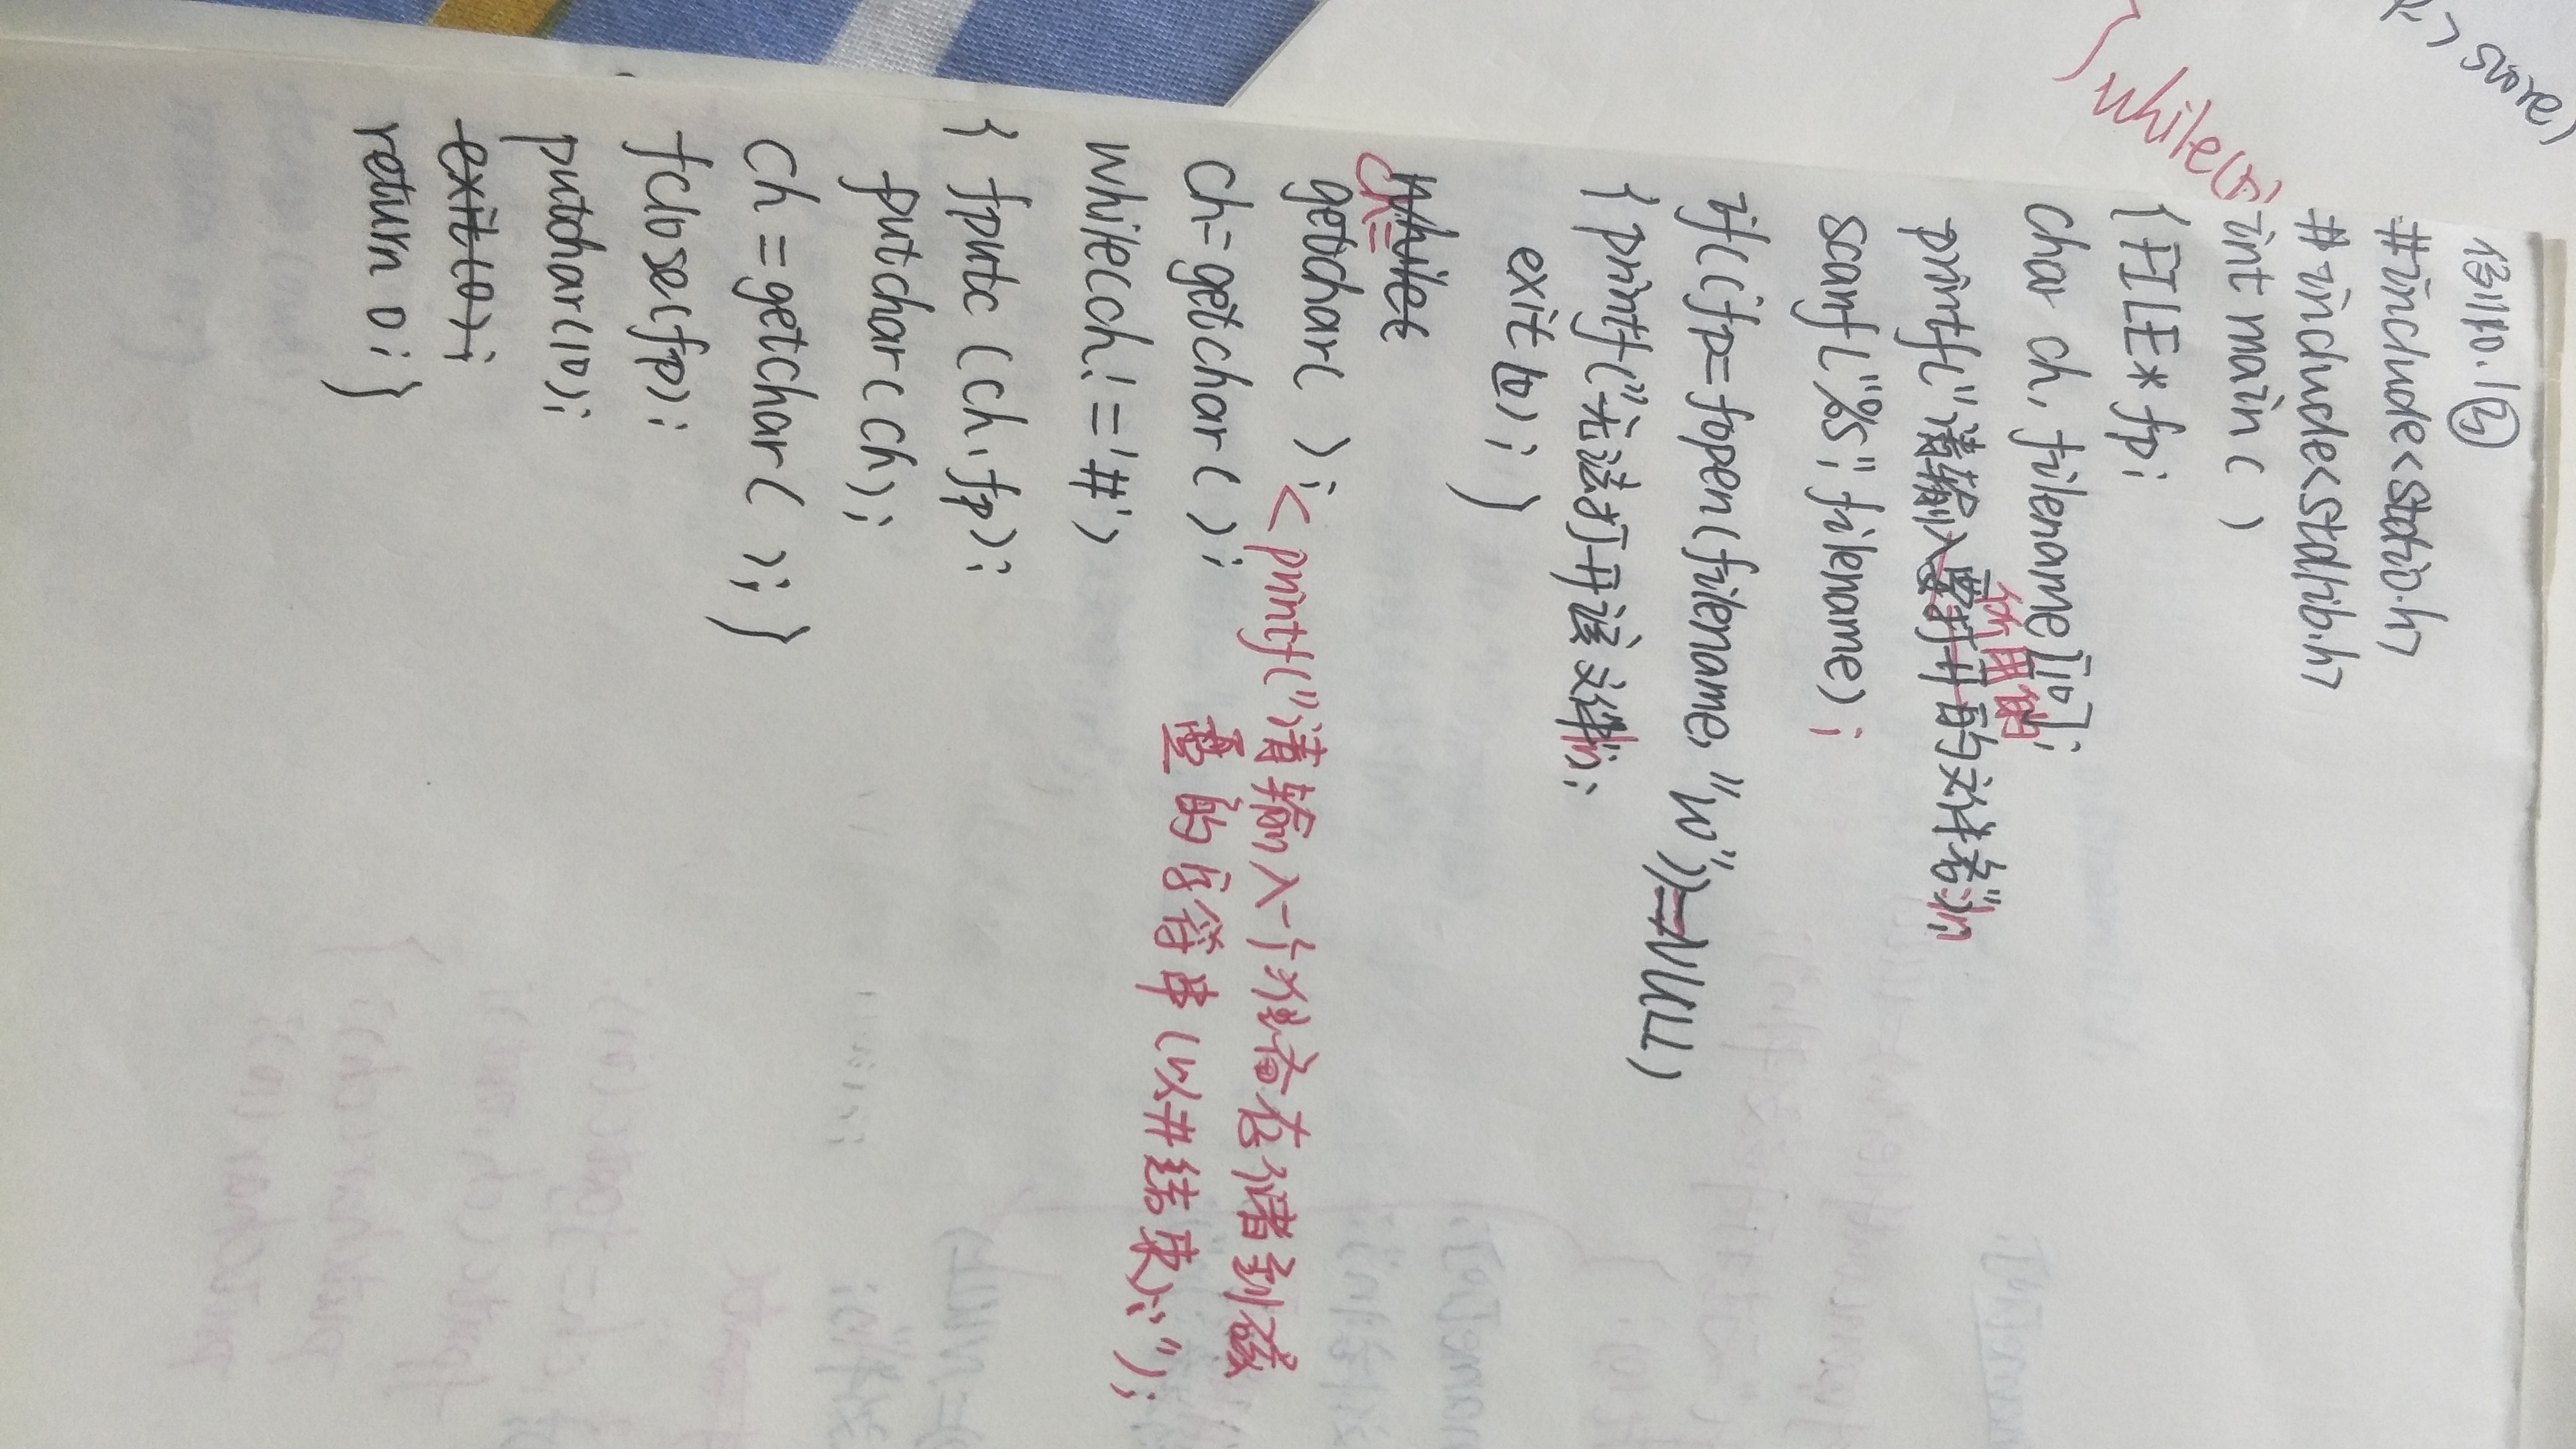 例10.1③
#include<stdio.h>
#include<stdlib.h>
int main( )
{FILE* fp;
char ch, filename[10];
所用的
printf("请输入要打开的文件名\n");
scanf("%s", filename);
if((fp=fopen(filename, "w"))==NULL)
{printf("无法打开该文件\n");
exit(0); }
while(
ch=
getchar( );
<printf("请输入一个准备存储到磁
盘的字符串(以#结束):");
ch=getchar( );
while(ch!='#')
{ fputc (ch, fp);
putchar(ch);
ch=getchar( ); }
fclose(fp);
putchar(10);
exit(0);
return 0; }
score)
while(